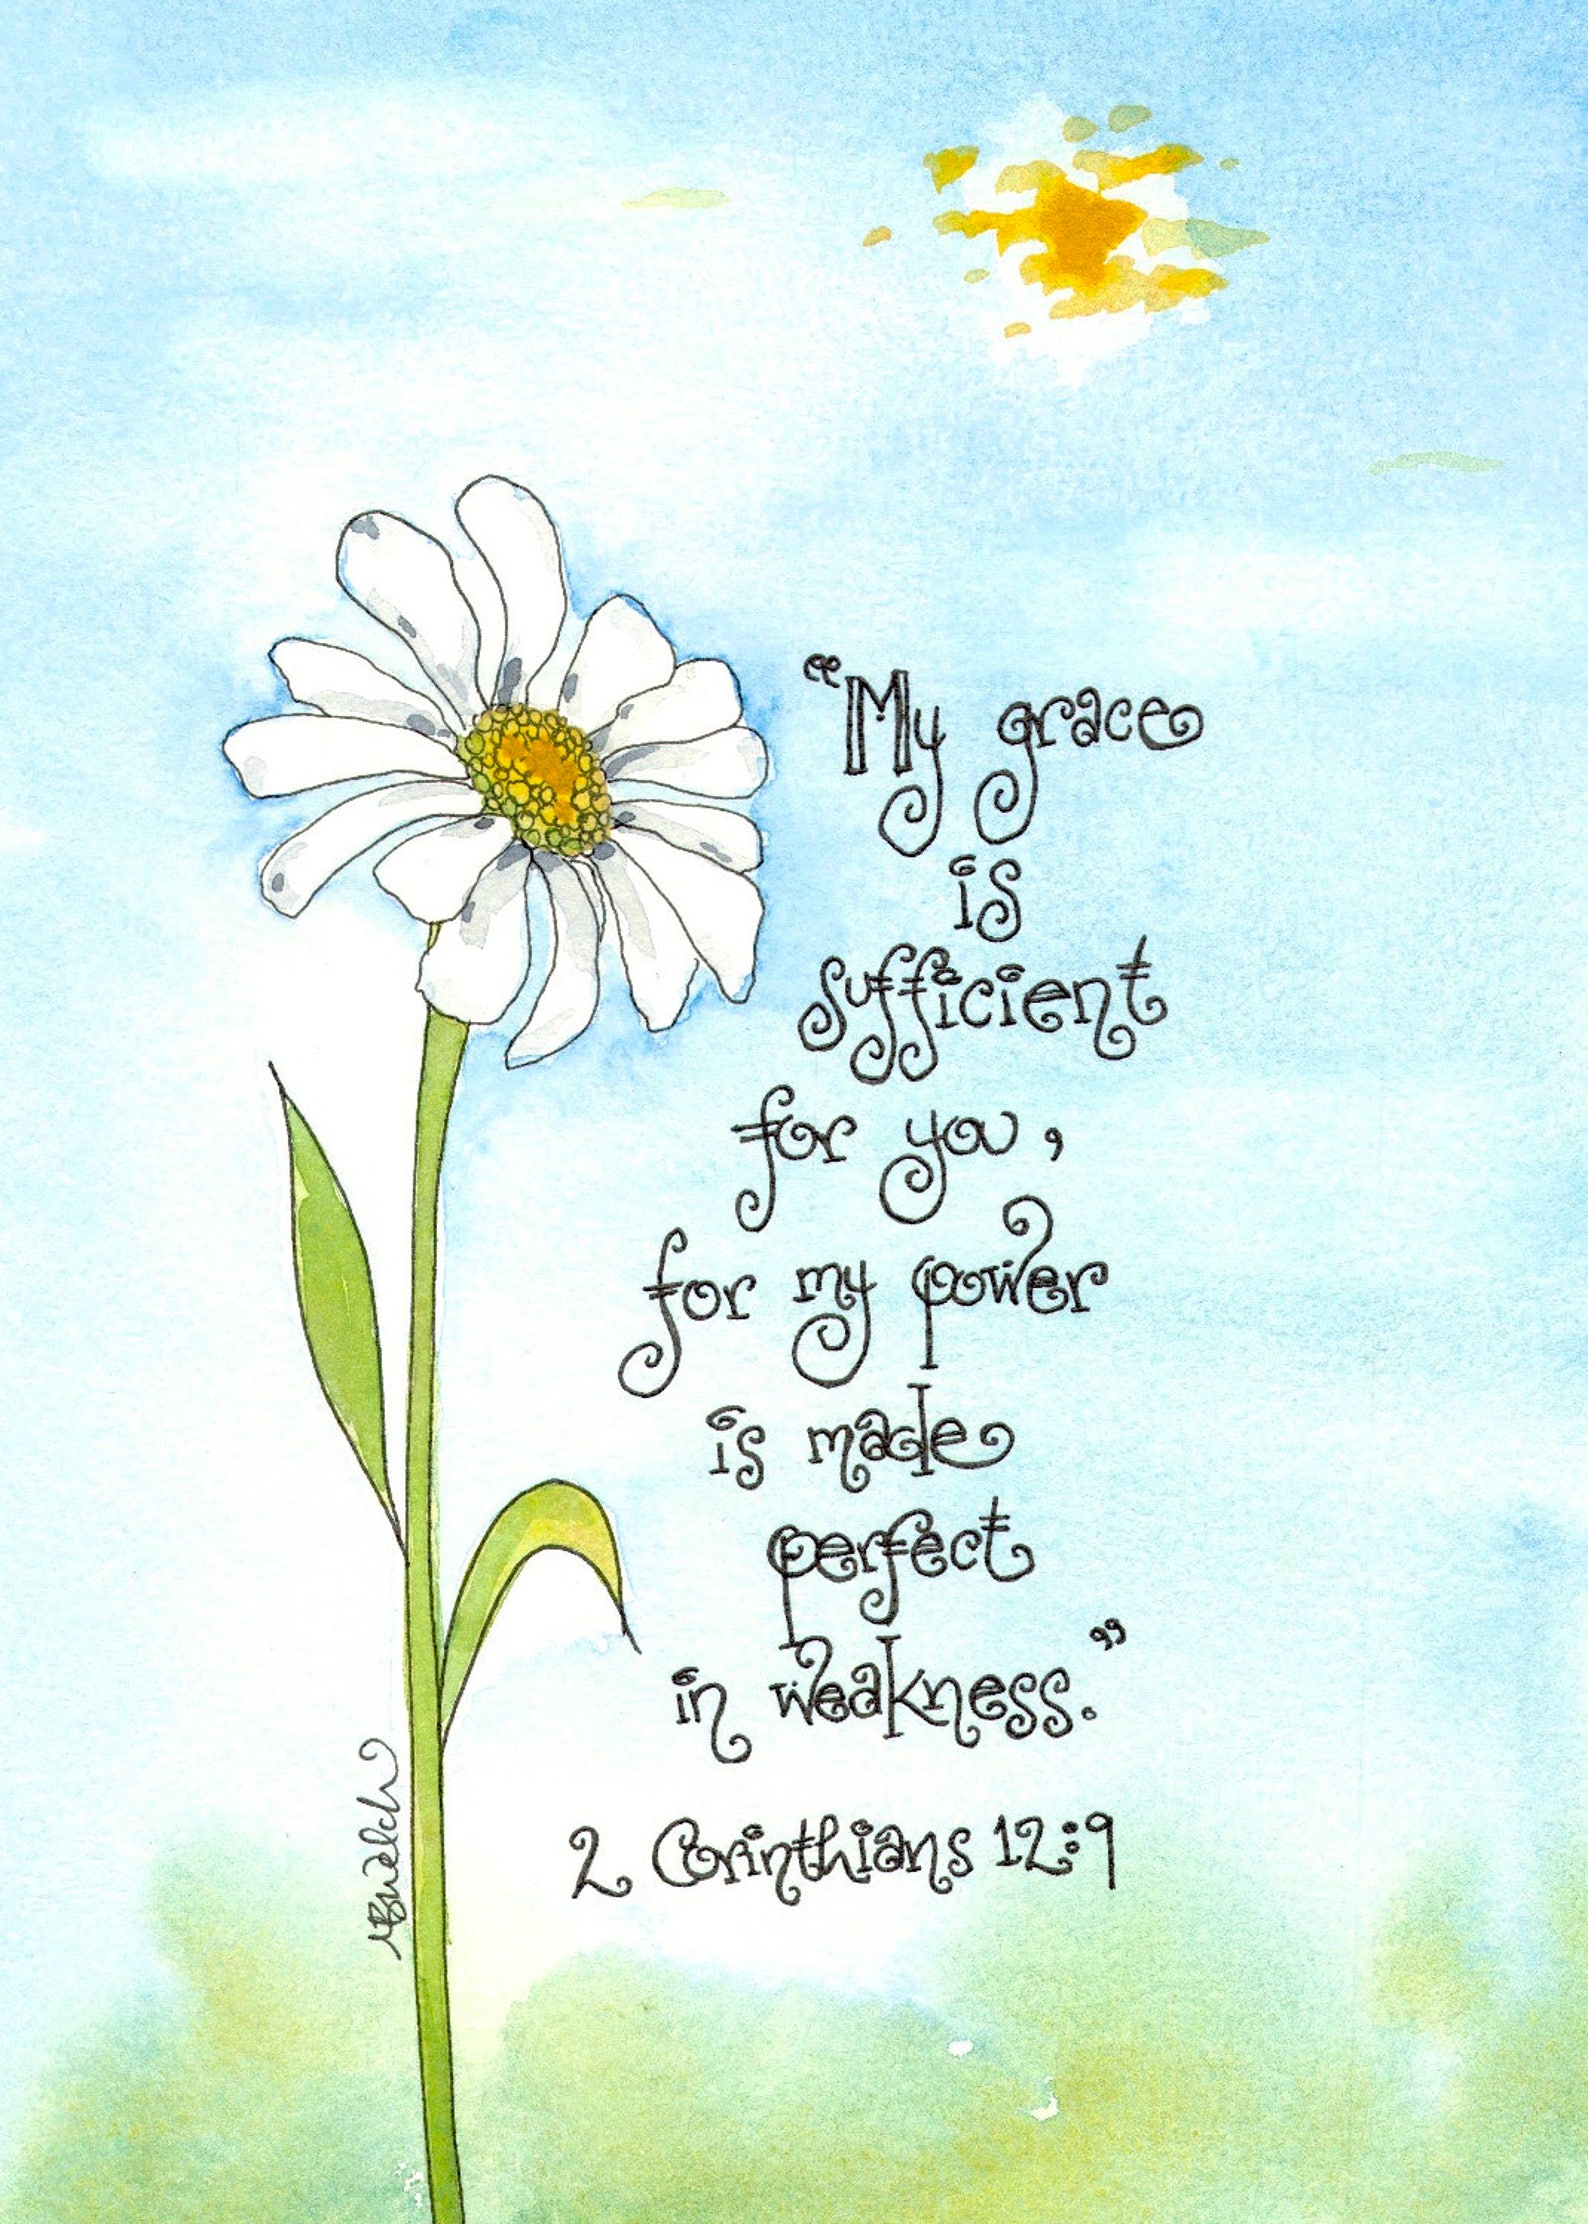 “My grace
is
sufficient
for you,
for my power
is made
perfect
in weakness.”
2 Corinthians 12:9
BWelch